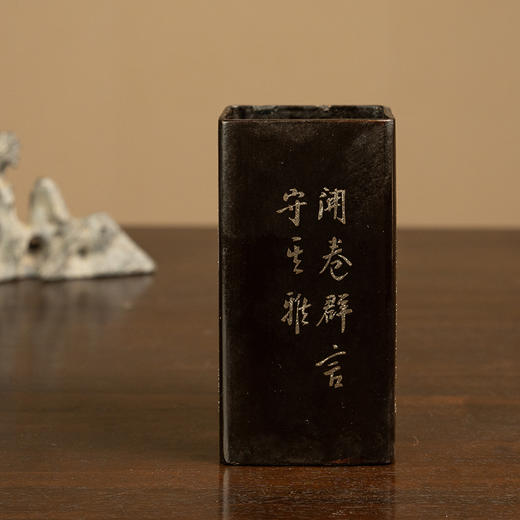 開卷群言
守其雅